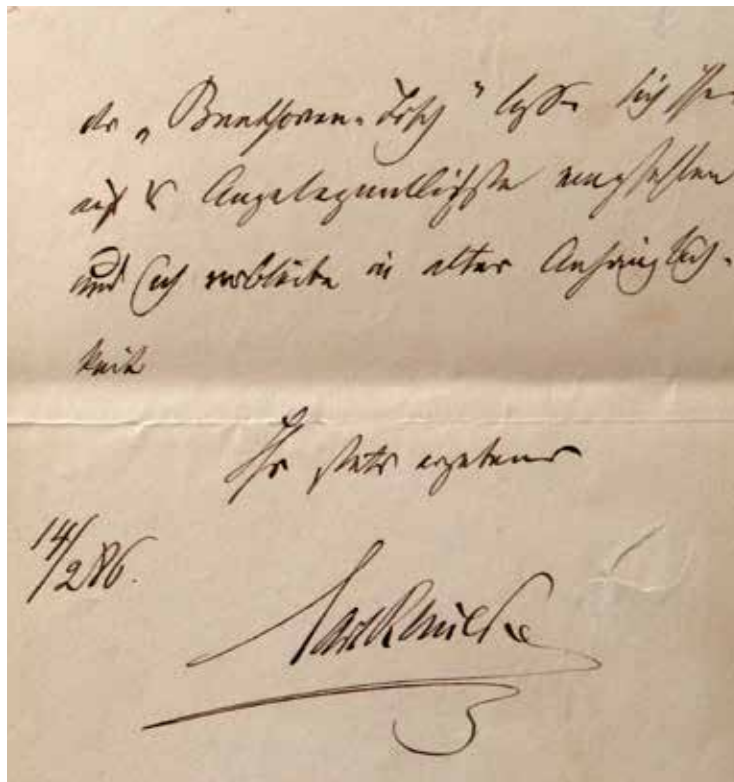 der „Beethoven-Tisch" lassen sich Ihnen
auf's Angelegentlichste empfehlen
und ich verbleibe in alter Anhänglich-
keit
Ihr stets ergebener
14/2 86.
Carl Reinecke